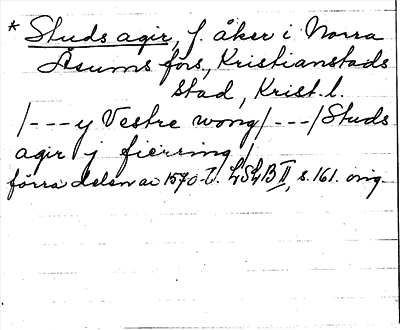 * Studs agir, f. åker i Norra
Åsums förs, Kristianstads
stad, Krist. l.
/---y Vestre wong/---/Studs
agir j fierring/
förra delen av 1570-t. LSLB II, s. 161. orig.